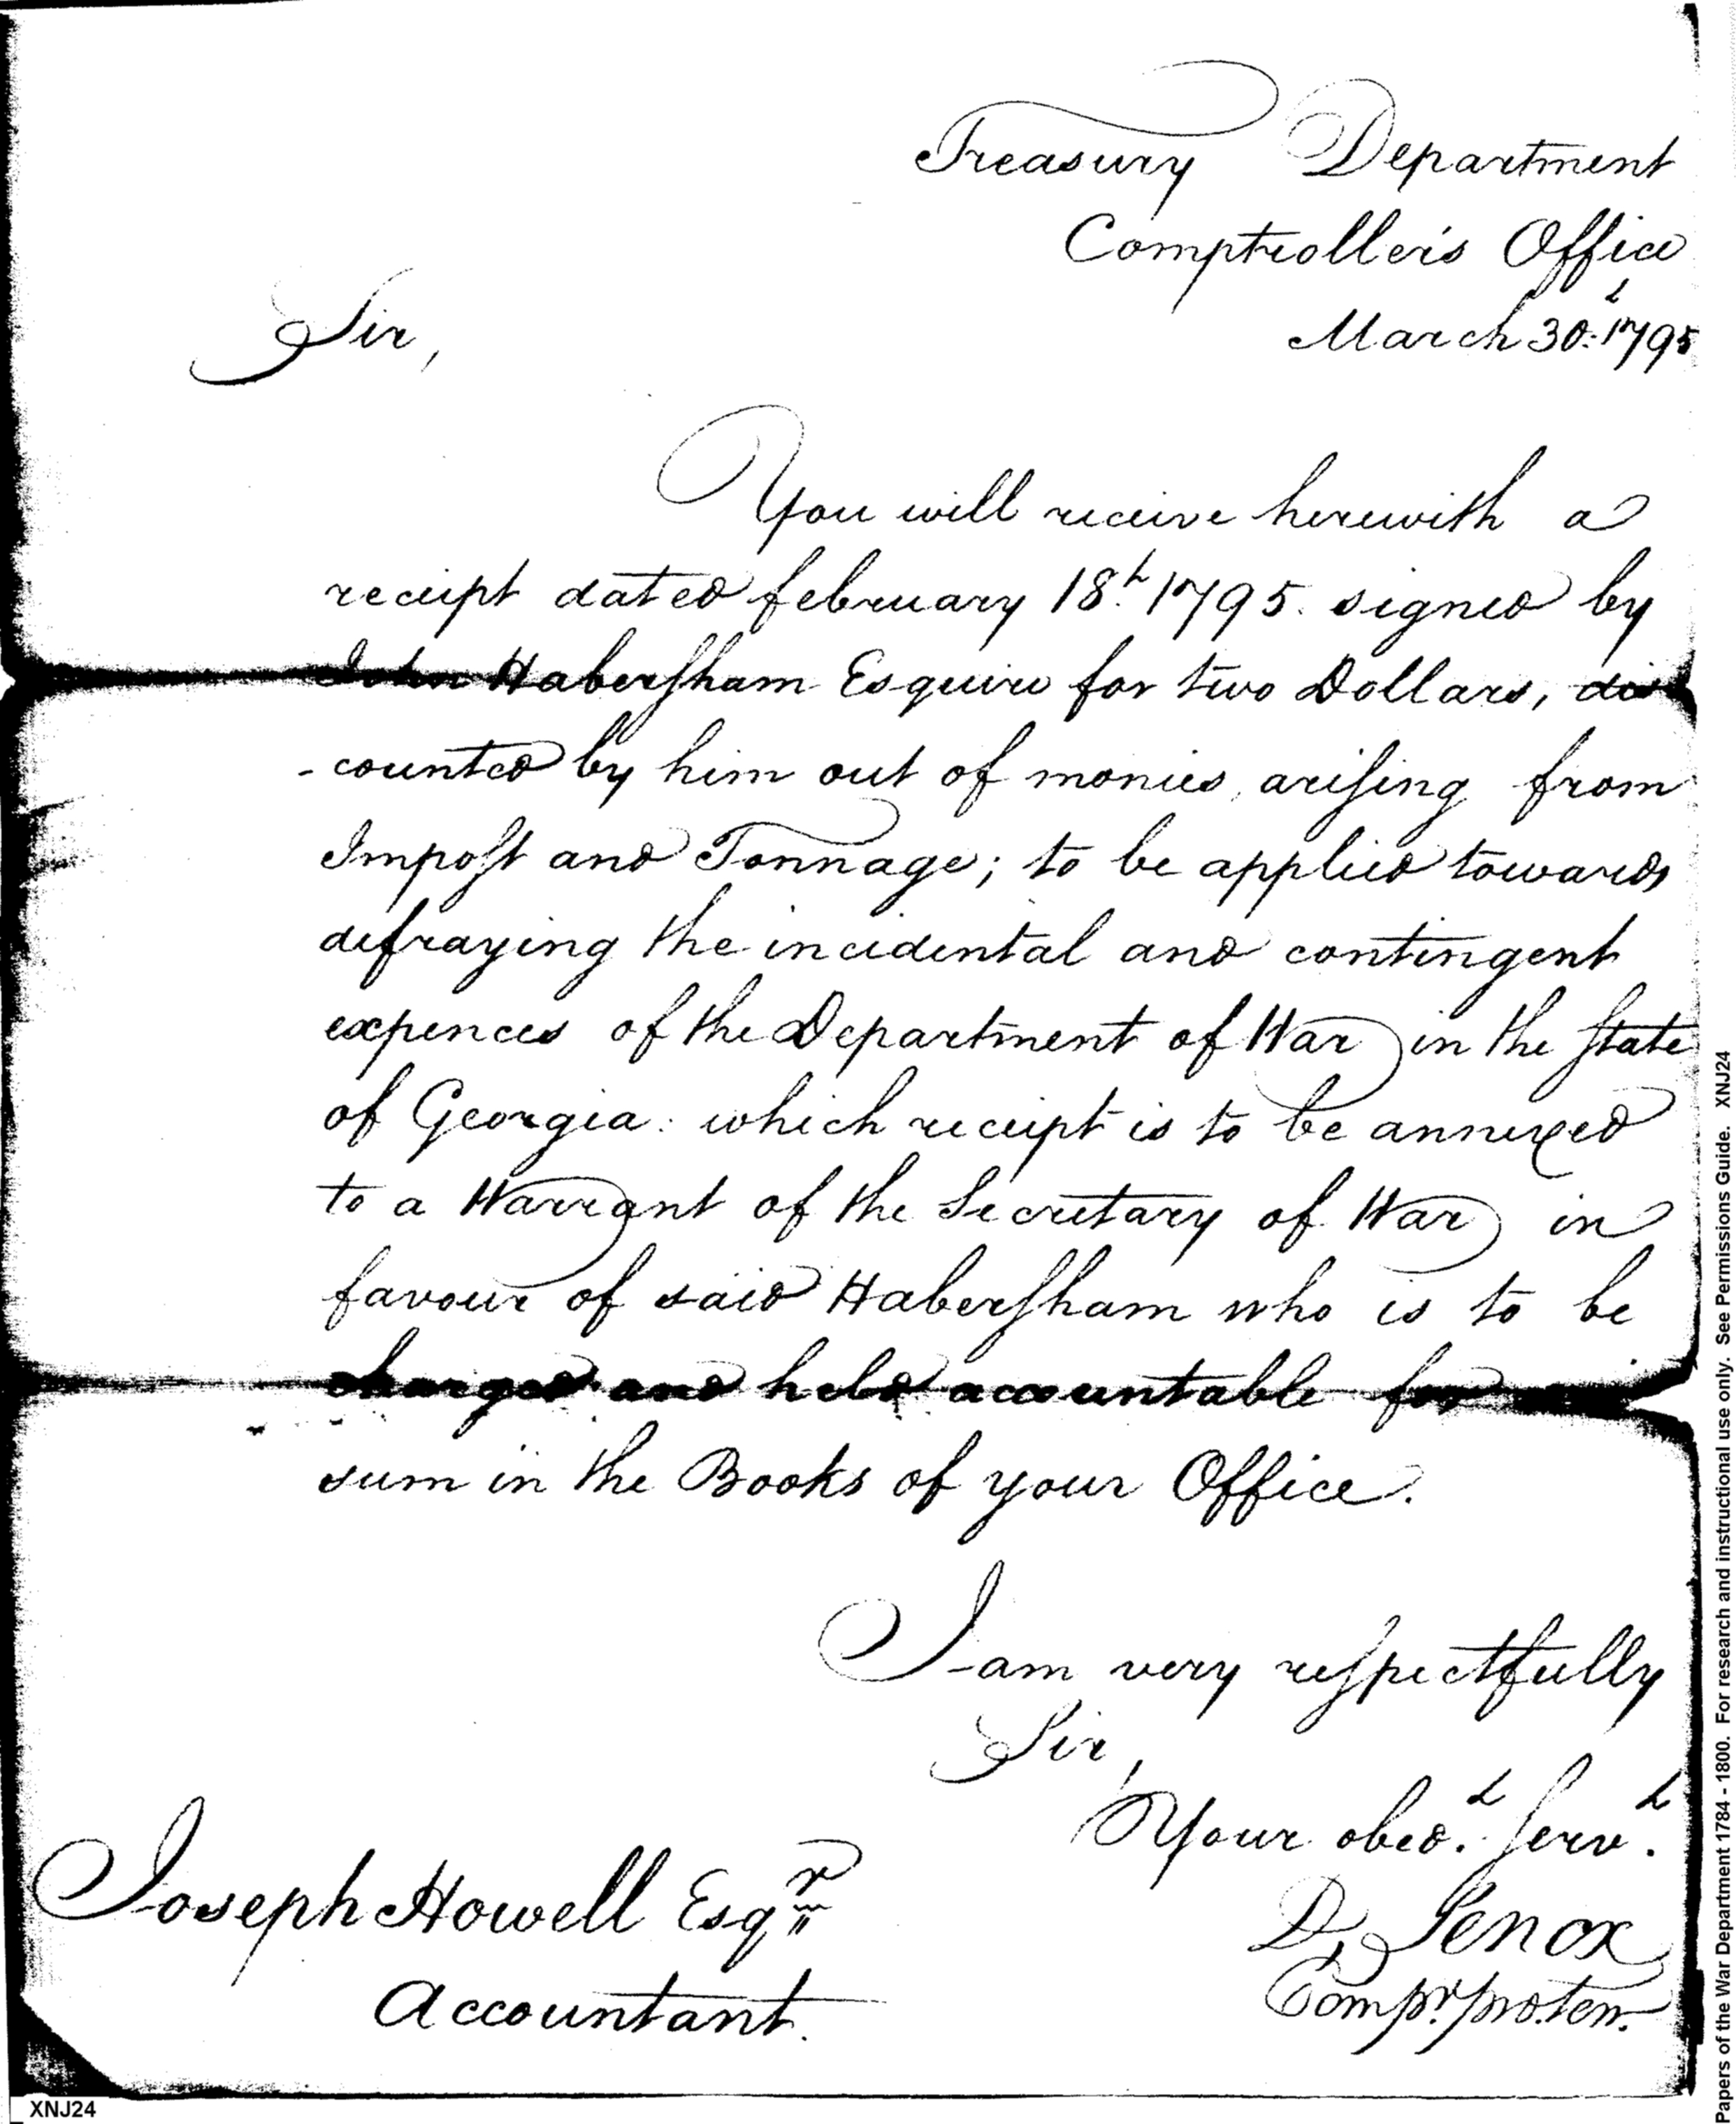 Treasury Department
Comptroller's Office
March 30:th 1795
Sir,
You will receive herewith a
receipt dated february 18.th 1795. signed by
John Haberſham Esquire for two Dollars, dis
-counted by him out of monies, ariſing from
Impoſt and Tonnage; to be applied towards
defraying the incidental and contingent
expences of the Department of War in the State
of Georgia: which receipt is to be annexed
to a Warrant of the Secretary of War in
favour of said Haberſham who is to be
charged and held accountable for
sum in the Books of your Office.
I am very reſpectfully
Sir,
Your obed.t Serv.t
D, Lenox
Comp.r pro. tem.
Joseph Howell Esq.r
Accountant.
XNJ24
Papers of the War Department 1784 - 1800. For research and instructional use only. See Permissions Guide. XNJ24